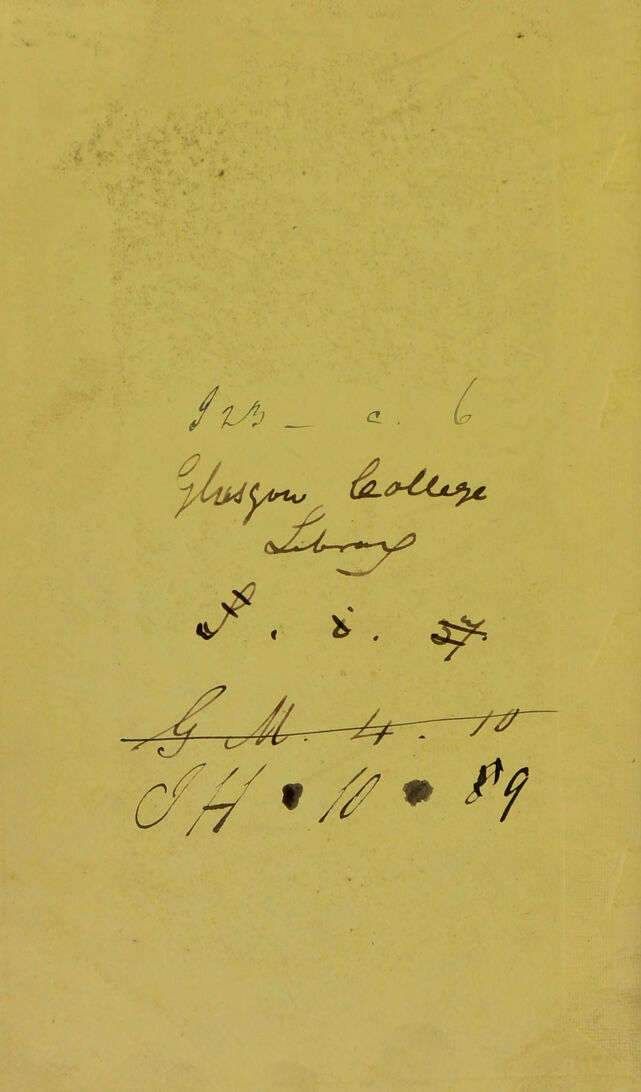 I23 - c. 6
Glasgow College
Library
G M. 4. 10
IH. 10. 9